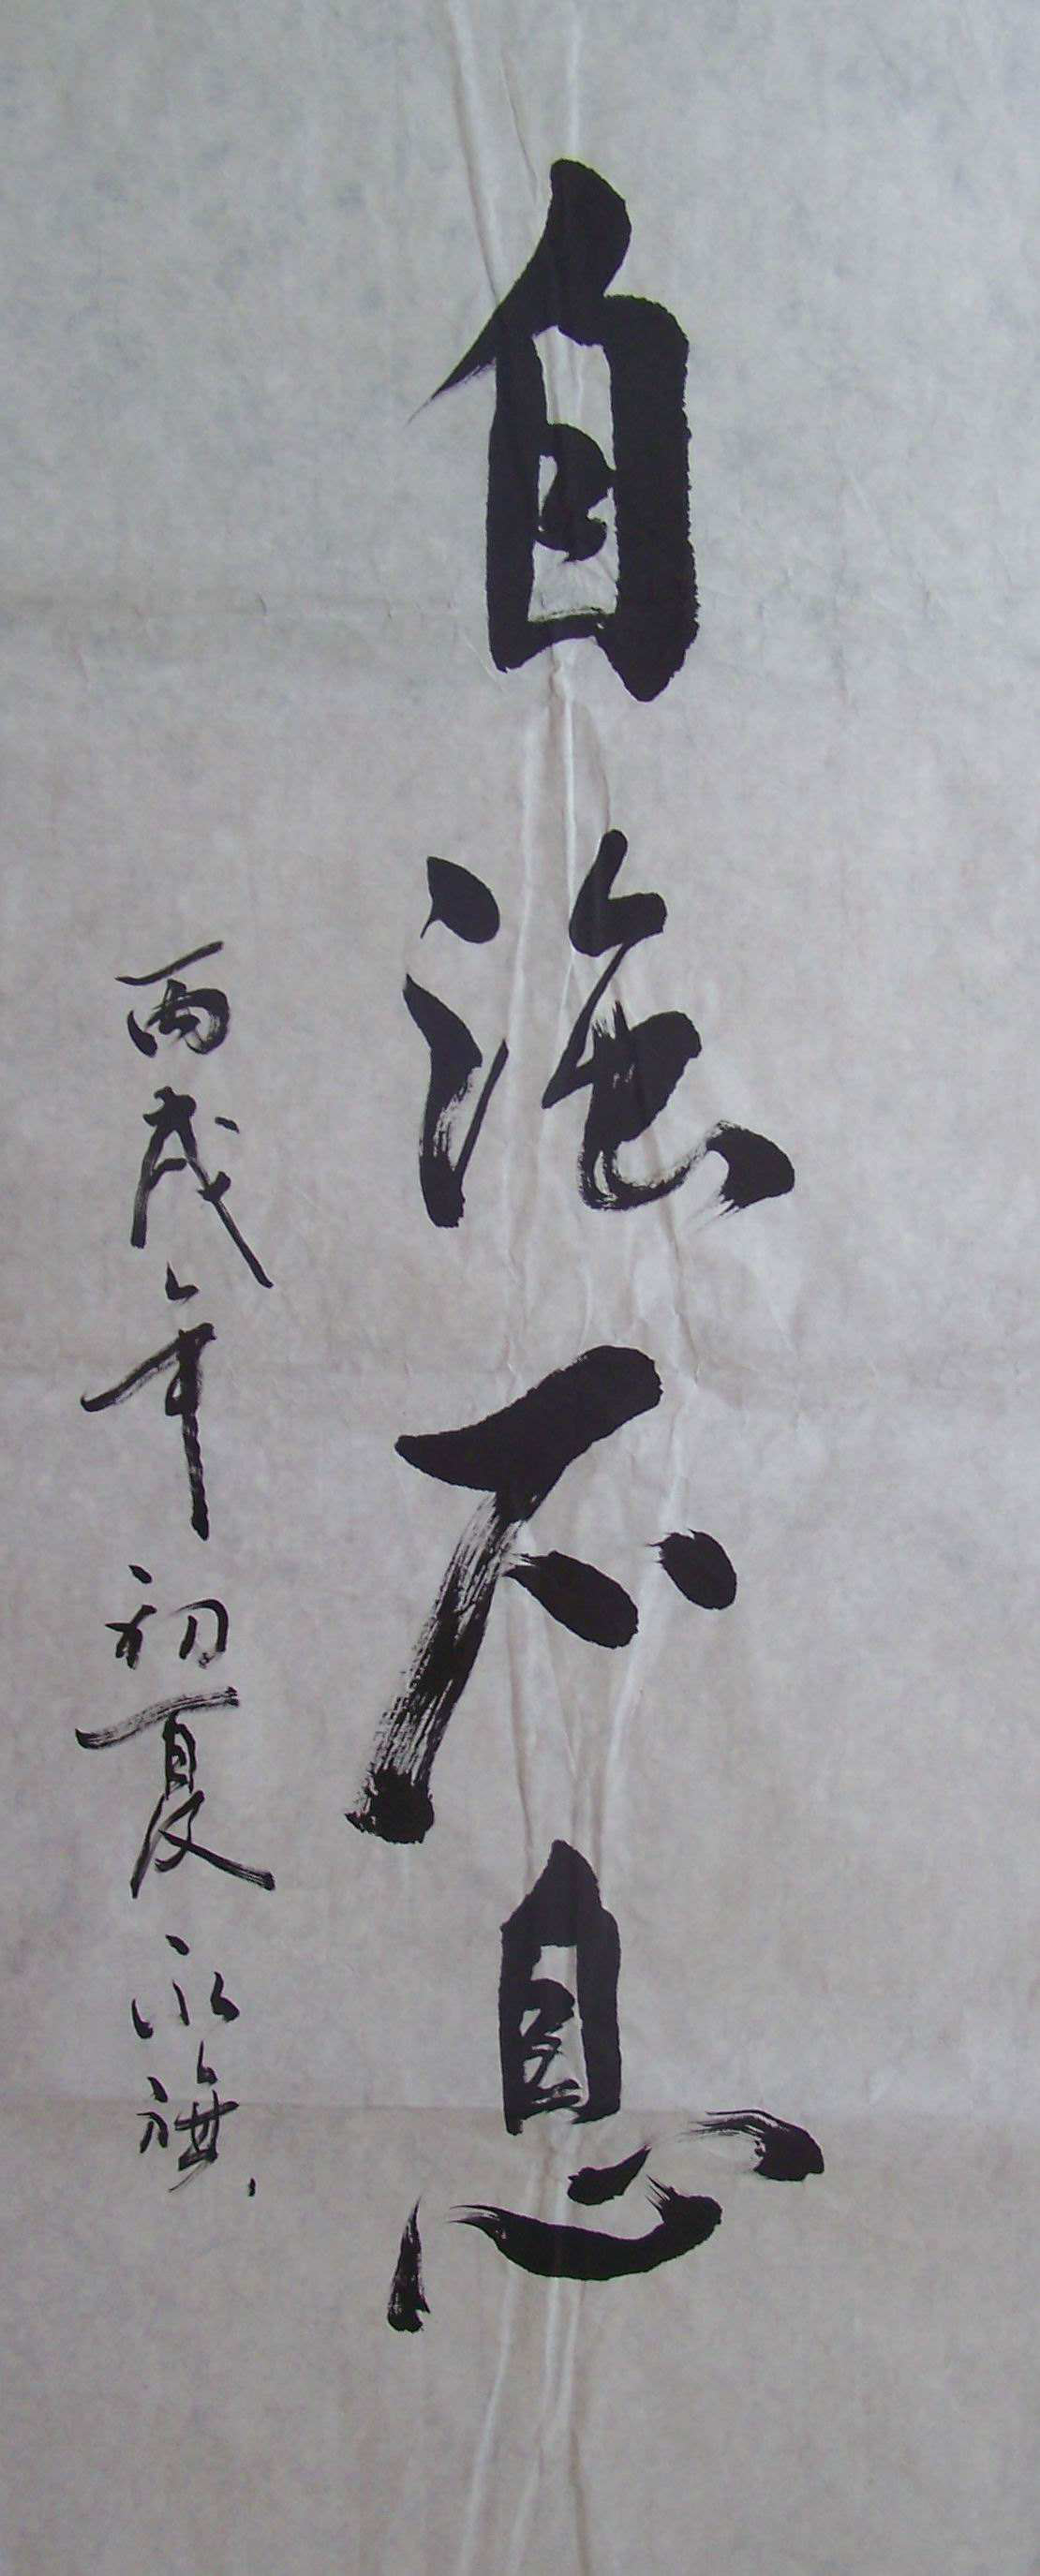 自强不息
丙戌年初夏永旗